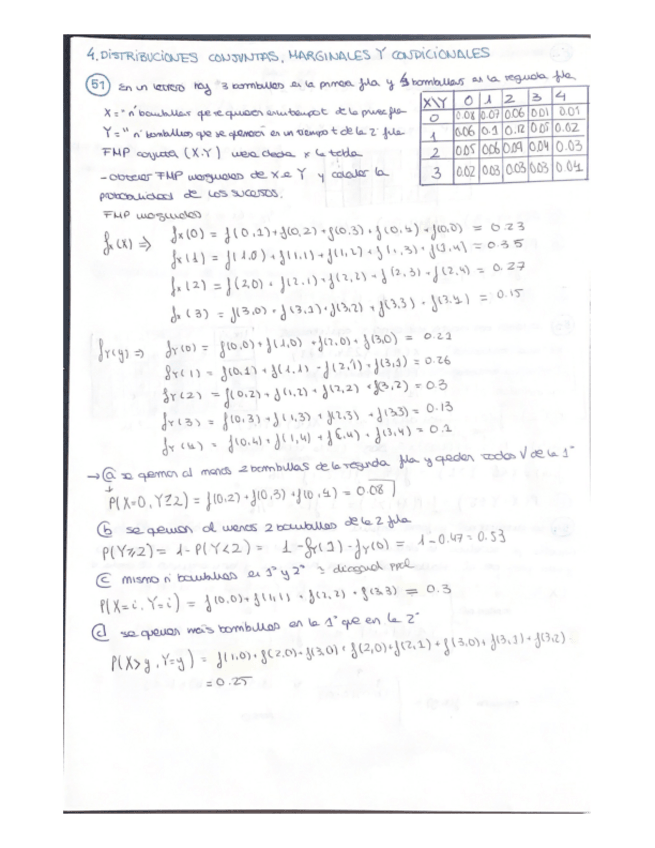 4. DISTRIBUCIONES CONJUNTAS, MARGINALES Y CONDICIONALES
51 En un letrero hay 3 bombillas en la primera fila y 4 bombillas en la segunda fila
X = "nº bombillas que se queman en un tiempo t de la primera fila
Y = "nº bombillas que se queman en un tiempo t de la 2ª fila
FMP conjunta (X,Y) viene dada x la tabla
- obtener FMP marginales de X e Y y calcular la
probabilidad de los sucesos.
X\Y 0 1 2 3 4
0 0.08 0.07 0.06 0.01 0.01
1 0.06 0.1 0.12 0.05 0.02
2 0.05 0.06 0.09 0.04 0.03
3 0.02 0.03 0.03 0.03 0.04
FMP marginales
fx(x) ⇒ fx(0) = f(0,1)+f(0,2)+f(0,3)+f(0,4)+f(0,0) = 0.23
fx(1) = f(1,0)+f(1,1)+f(1,2)+f(1,3)+f(1,4) = 0.35
fx(2) = f(2,0)+f(2,1)+f(2,2)+f(2,3)+f(2,4) = 0.27
fx(3) = f(3,0)+f(3,1)+f(3,2)+f(3,3)+f(3,4) = 0.15
fy(y) ⇒ fy(0) = f(0,0)+f(1,0)+f(2,0)+f(3,0) = 0.21
fy(1) = f(0,1)+f(1,1)+f(2,1)+f(3,1) = 0.26
fy(2) = f(0,2)+f(1,2)+f(2,2)+f(3,2) = 0.3
fy(3) = f(0,3)+f(1,3)+f(2,3)+f(3,3) = 0.13
fy(4) = f(0,4)+f(1,4)+f(2,4)+f(3,4) = 0.1
→ a se queman al menos 2 bombillas de la segunda fila y quedan todas de la 1ª
P(X=0, Y≥2) = f(0,2)+f(0,3)+f(0,4) = 0.08
b se queman al menos 2 bombillas de la 2 fila
P(Y≥2) = 1 - P(Y<2) = 1 - fy(1) - fy(0) = 1 - 0.47 = 0.53
c mismo nº bombillas en 1ª y 2ª diagonal ppal
P(X=i, Y=i) = f(0,0)+f(1,1)+f(2,2)+f(3,3) = 0.3
d se queman más bombillas en la 1ª que en la 2ª
P(X>y, Y=y) = f(1,0)+f(2,0)+f(3,0)+f(2,0)+f(2,1)+f(3,0)+f(3,1)+f(3,2)
= 0.25